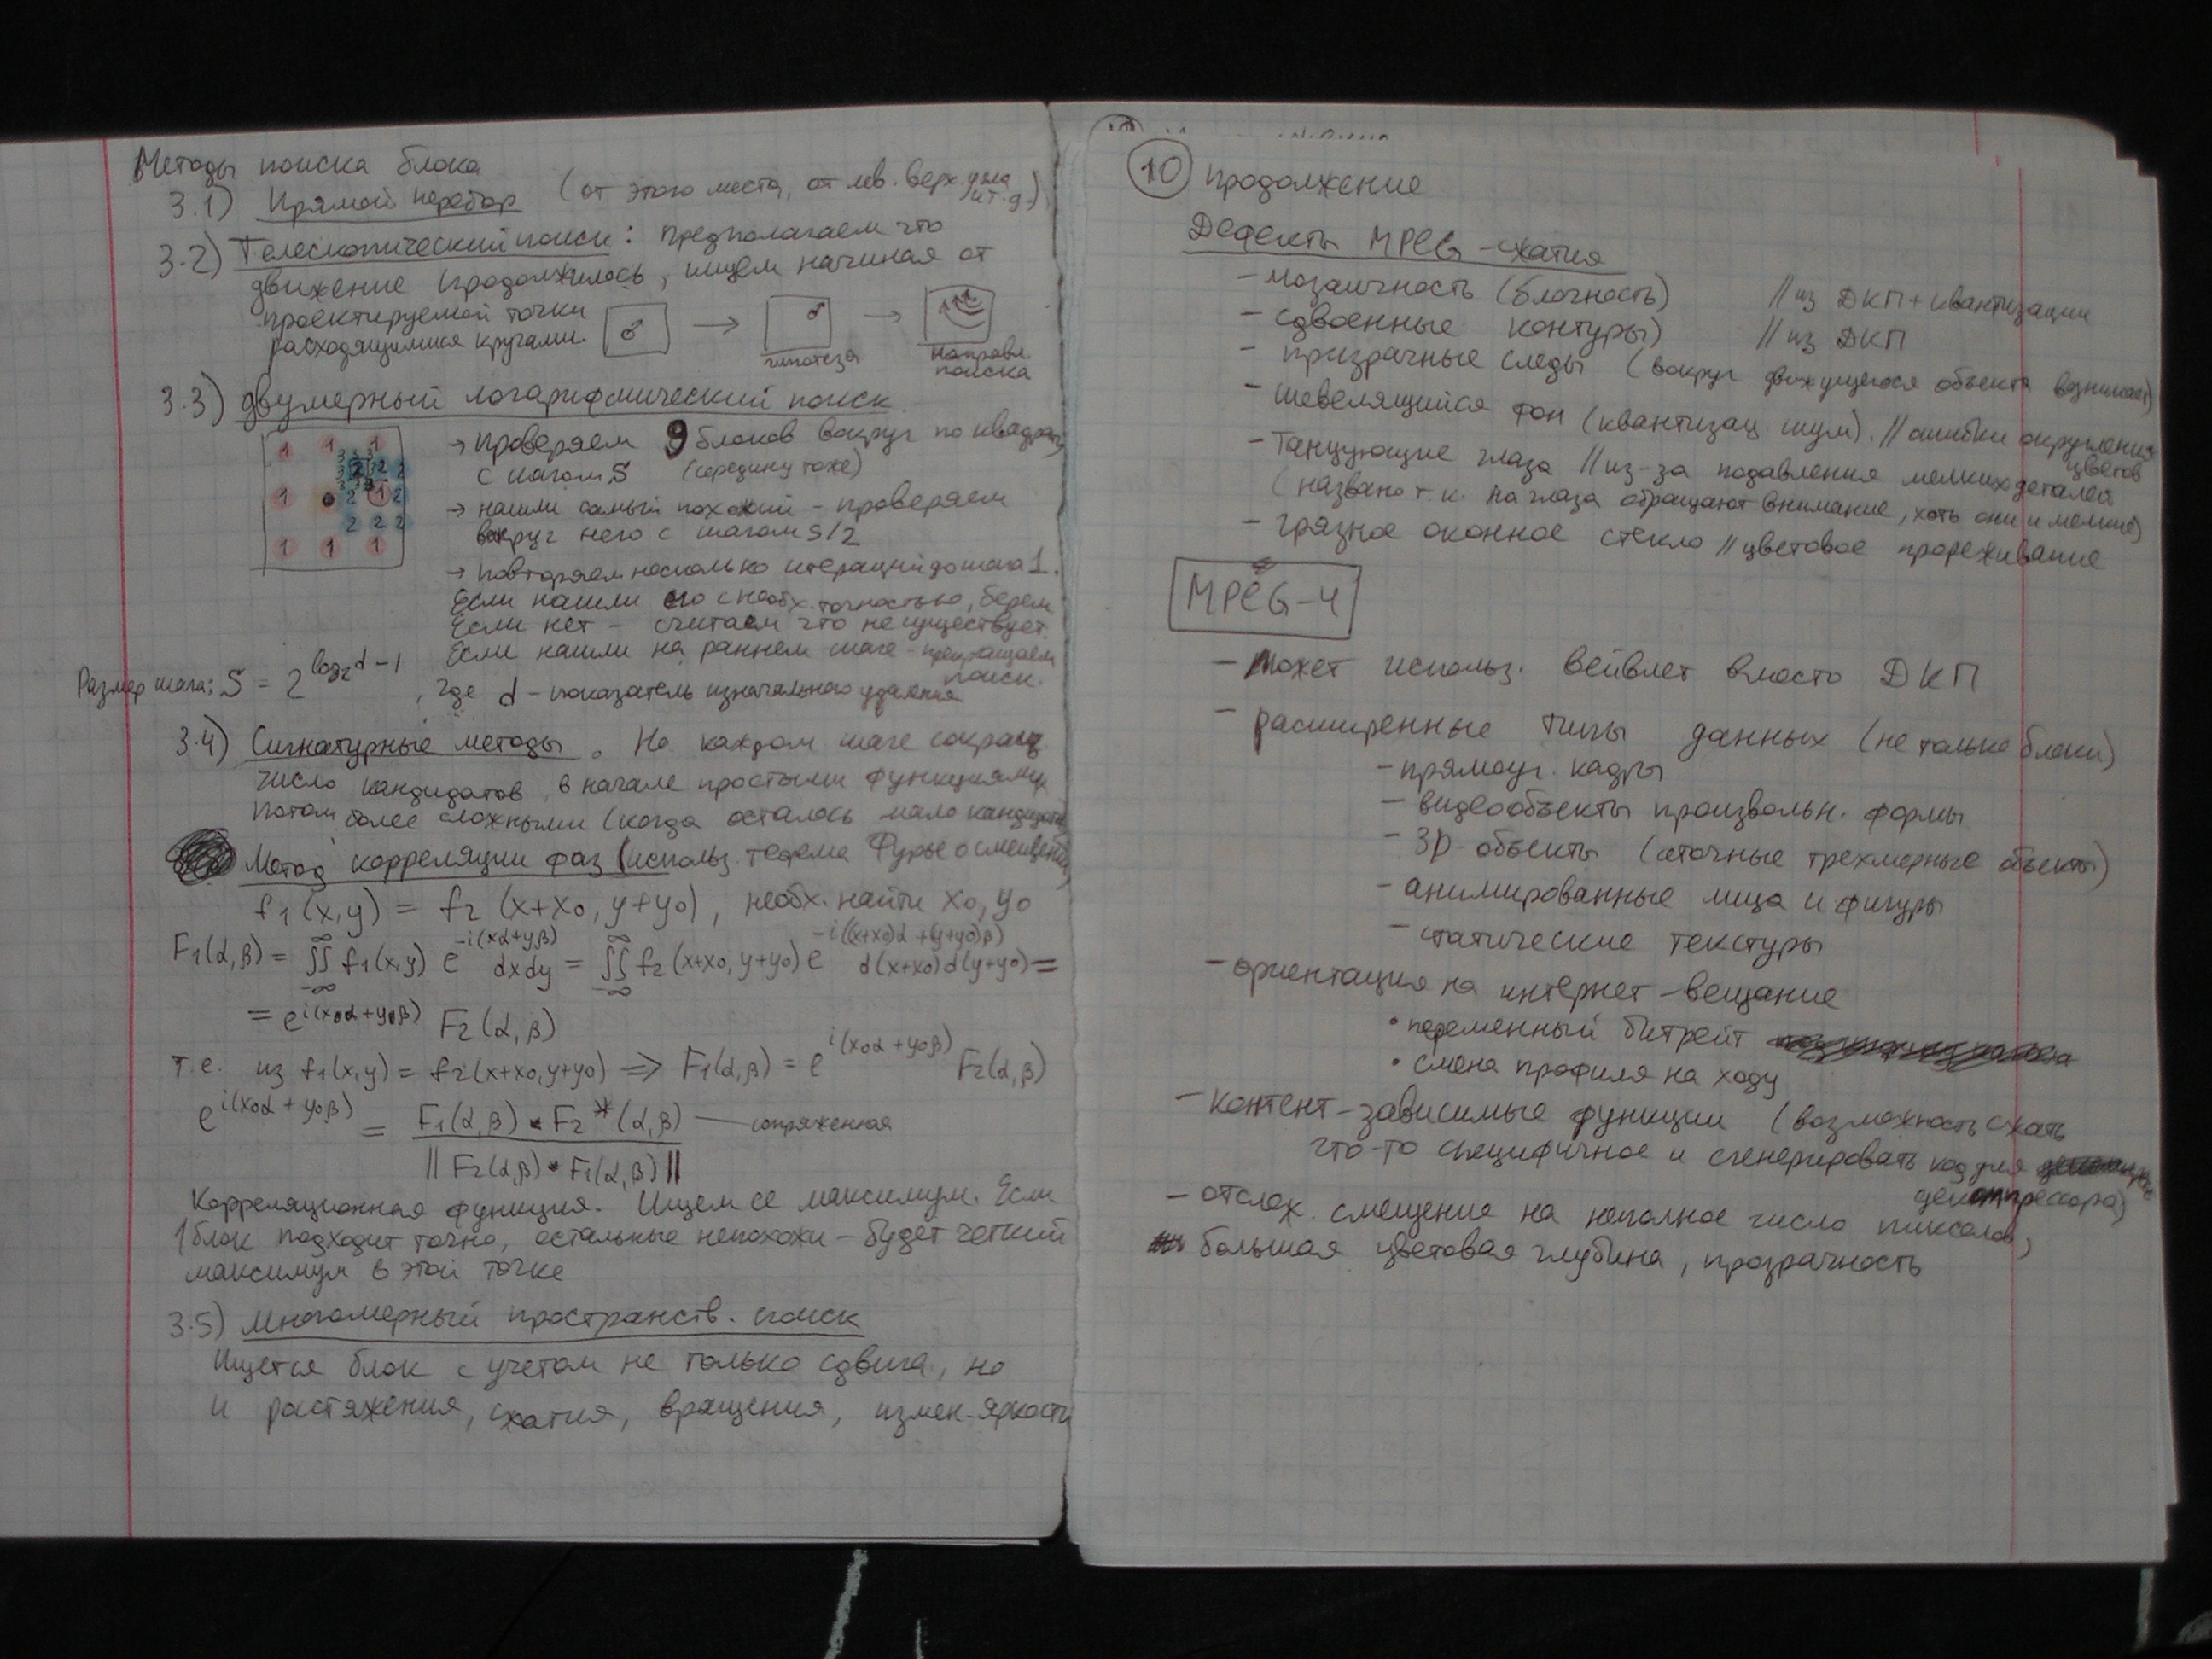 Методы поиска блока
3.1) Прямой перебор (от этого места, от лев. верх. угла и т.д.)
3.2) Телескопический поиск: предполагаем что
движение продолжилось, ищем начиная от
проектируемой точки
расходящимися кругами.
гипотеза
направл.
поиска
3.3) двумерный логарифмический поиск
1 1 1
3 3 3
3 2 3 2 2
3 3 3
1 2 1 2
2 2 2
1 1 1
→ проверяем 9 блоков вокруг по квадрату
с шагом S (середину тоже)
→ нашли самый похожий - проверяем
вокруг него с шагом S/2
→ повторяем несколько итераций до шага 1.
Если нашли его с необх. точностью, берем
Если нет - считаем что не существует.
Если нашли на раннем шаге - прекращаем
поиск.
Размер шага: S = 2^(log₂d - 1), где d - показатель изначального удаления
3.4) Сигнатурные методы. На каждом шаге сокращ.
число кандидатов, в начале простыми функциями,
потом более сложными (когда осталось мало кандидатов)
Метод корреляции фаз (использ. теорема Фурье о смещении)
f₁(x,y) = f₂(x+x₀, y+y₀), необх. найти x₀, y₀
F₁(α,β) = ∬ f₁(x,y) e^(-i(xα+yβ)) dxdy = ∬ f₂(x+x₀, y+y₀) e^(-i((x+x₀)α+(y+y₀)β)) d(x+x₀)d(y+y₀) =
= e^(i(x₀α+y₀β)) F₂(α,β)
т.е. из f₁(x,y) = f₂(x+x₀,y+y₀) ⇒ F₁(α,β) = e^(i(x₀α+y₀β)) F₂(α,β)
e^(i(x₀α+y₀β)) = F₁(α,β) • F₂*(α,β) — сопряженная
‖F₂(α,β) • F₁(α,β)‖
Корреляционная функция. Ищем её максимум. Если
1 блок подходит точно, остальные непохожи - будет четкий
максимум в этой точке
3.5) Многомерный пространств. поиск
Ищется блок с учетом не только сдвига, но
и растяжения, сжатия, вращения, измен. яркости
10 продолжение
Дефекты MPEG-сжатия
- мозаичность (блочность) // из ДКП + квантизации
- сдвоенные контуры) // из ДКП
- призрачные следы (вокруг движущегося объекта возникает)
- шевелящийся фон (квантизац. шум). // ошибки округления
цветов
- Танцующие глаза // из-за подавления мелких деталей
(названо т.к. на глаза обращают внимание, хоть они и мелкие)
- грязное оконное стекло // цветовое прореживание
MPEG-4
- может использ. вейвлет вместо ДКП
- расширенные типы данных (не только блоки)
- прямоуг. кадры
- видеообъекты произвольн. формы
- 3D-объекты (сеточные трехмерные объекты)
- анимированные лица и фигуры
- статические текстуры
- ориентация на интернет-вещание
• переменный битрейт
• смена профиля на ходу
- контент-зависимые функции (возможность сжать
что-то специфичное и сгенерировать код для
декомпрессора)
- отслеж. смещение на неполное число пикселов)
большая цветовая глубина, прозрачность